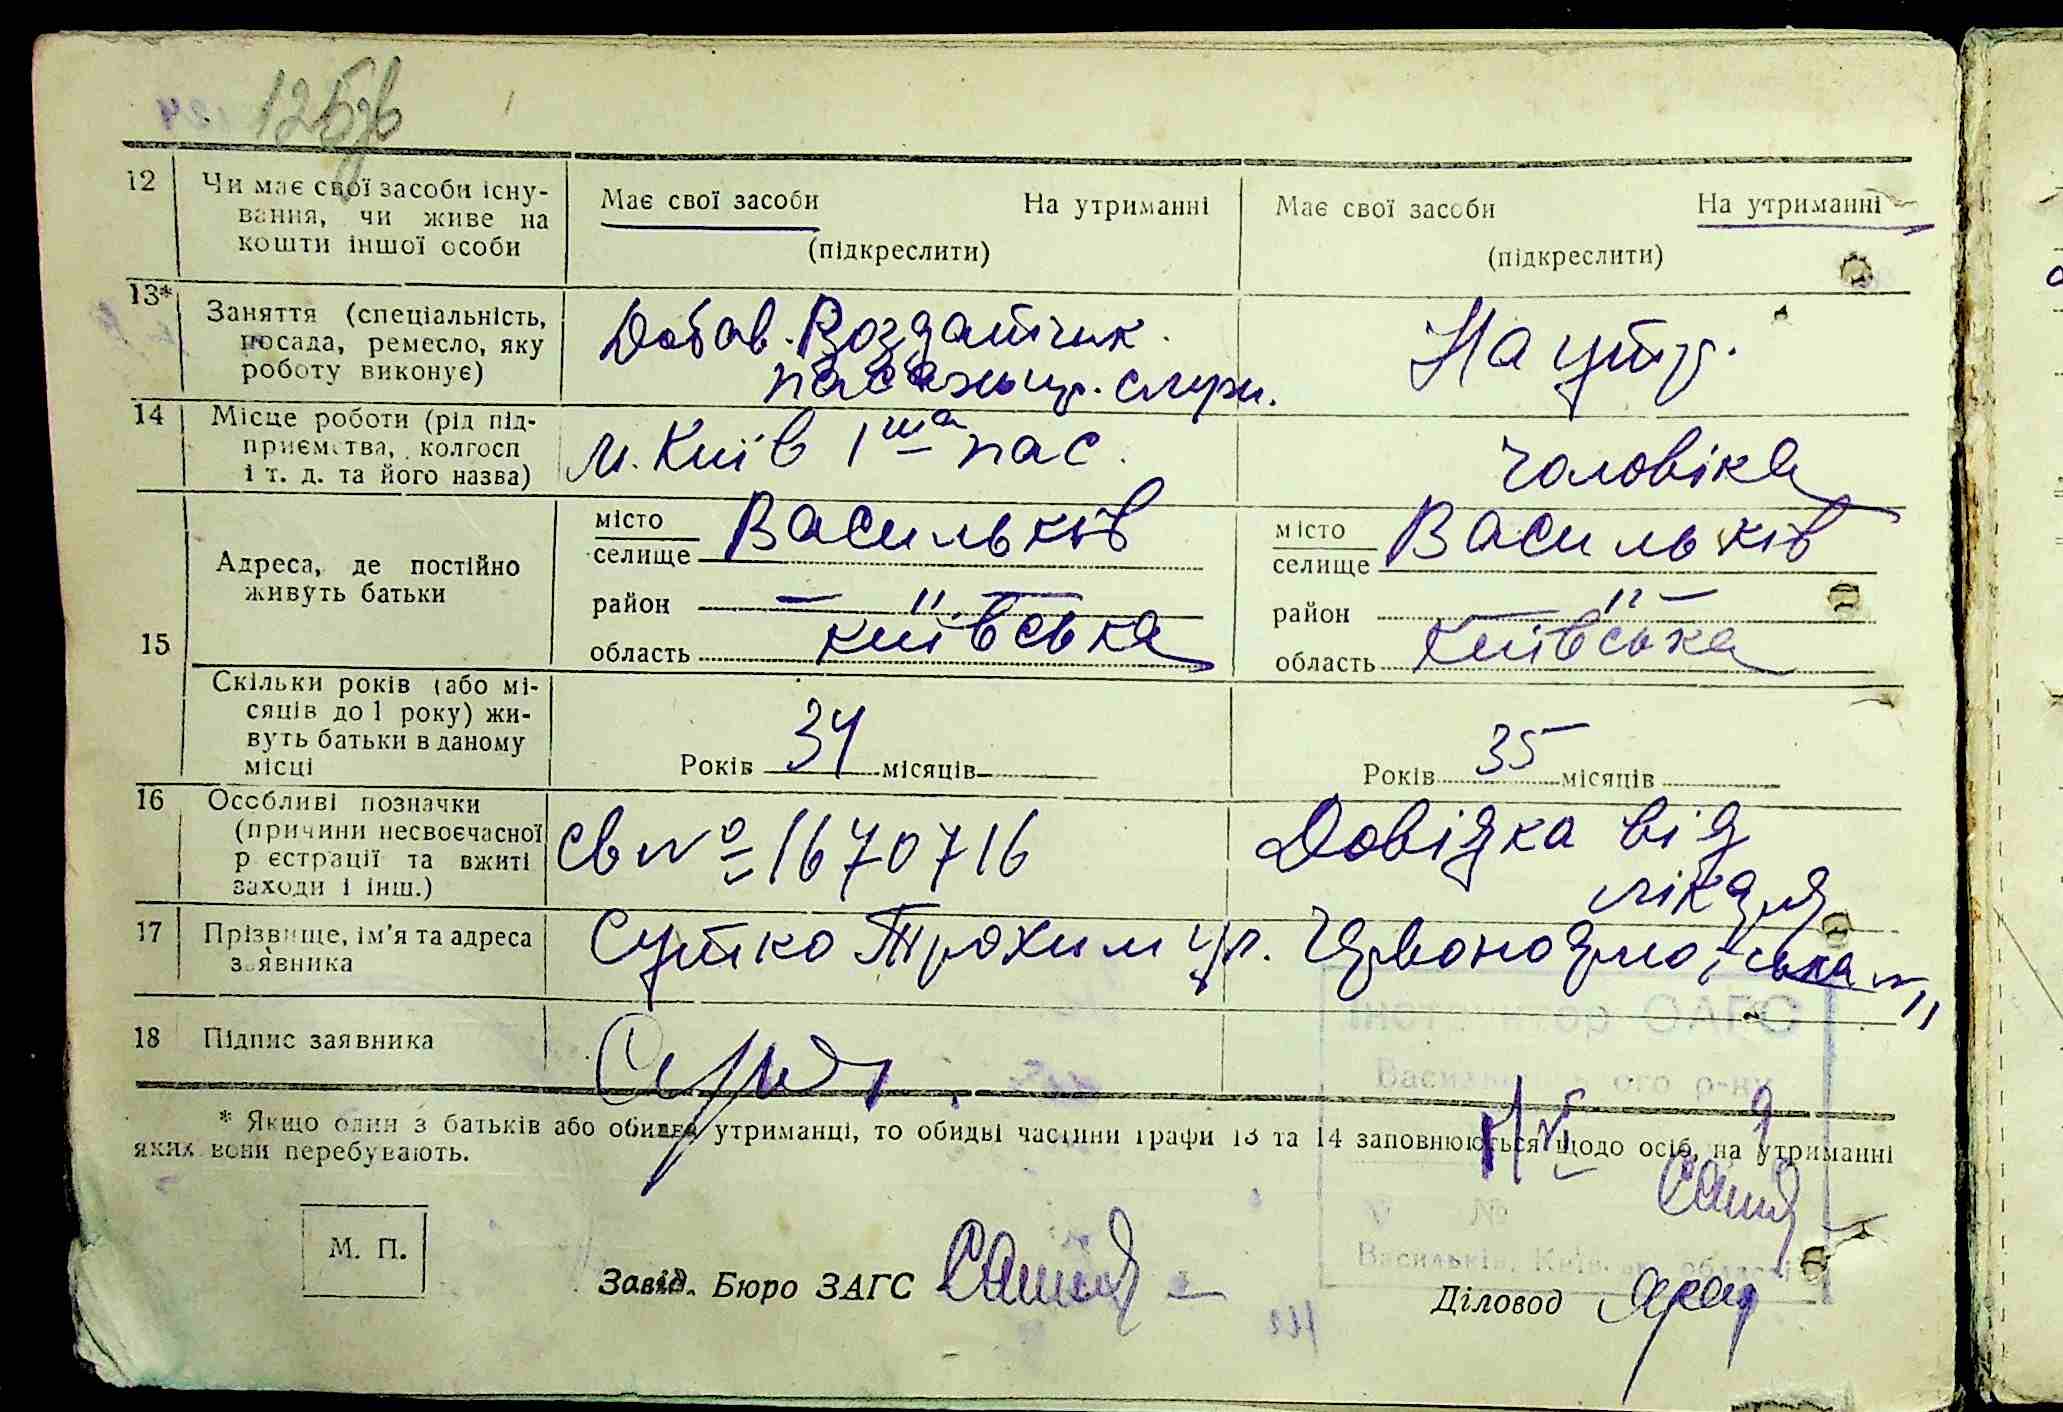 12
Чи має свої засоби існу-
вання, чи живе на
кошти іншої особи
Має свої засоби На утриманні
(підкреслити)
Має свої засоби На утриманні
(підкреслити)
13*
Заняття (спеціальність,
посада, ремесло, яку
роботу виконує)
На утр.
14
Місце роботи (рід під-
приємства, колгосп
і т. д. та його назва)
м. Київ 1ша пас.
чоловіка
15
Адреса, де постійно
живуть батьки
місто
селище Васильків
район — " —
область Київська
місто
селище Васильків
район — " —
область Київська
Скільки років (або мі-
сяців до 1 року) жи-
вуть батьки в даному
місці
Років 34 місяців
Років 35 місяців
16
Особливі позначки
(причини несвоєчасної
реєстрації та вжиті
заходи і інш.)
св № 1670716
Довідка від
лікаря
17
Прізвище, ім'я та адреса
заявника
Сутко Трохим ул. Червоноармейська № 11
18
Підпис заявника
* Якщо один з батьків або обидва утриманці, то обидві частини графи 13 та 14 заповнюються щодо осіб, на утриманні
яких вони перебувають.
Інспектор ОАГС
Васильківського р-ну
№
Васильків, Київськ. області
М. П.
Завід. Бюро ЗАГС
Діловод